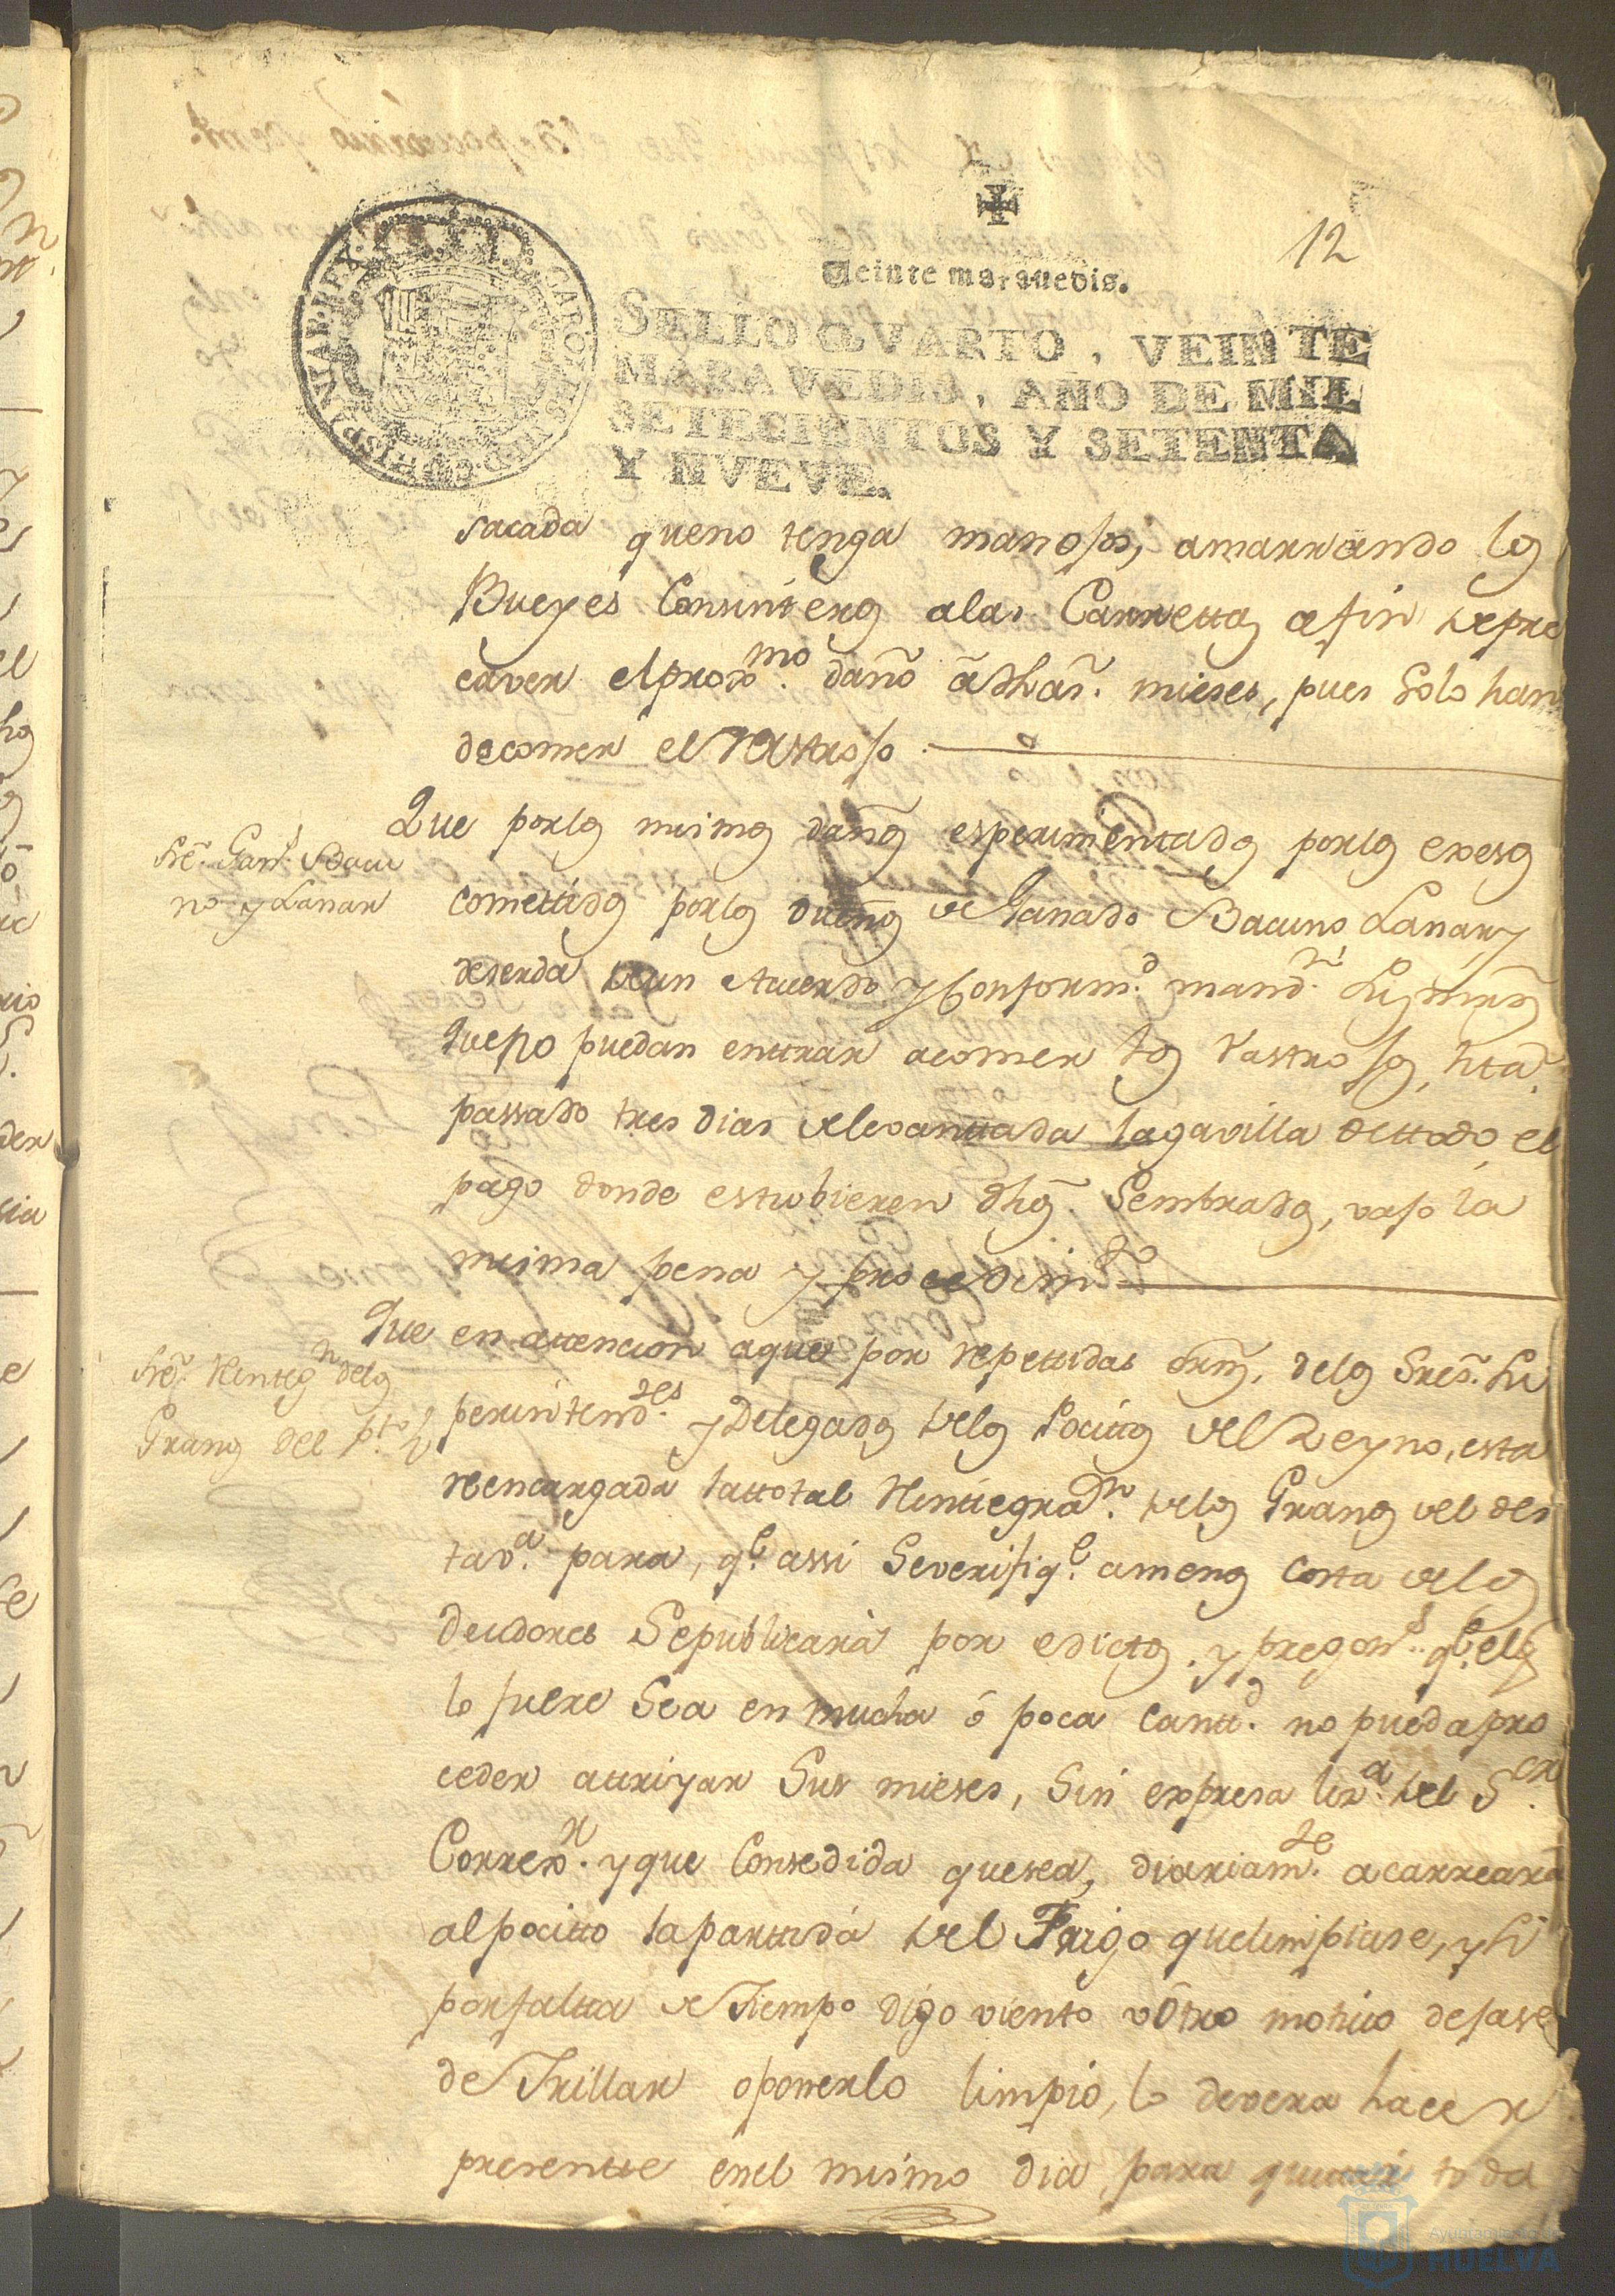 12
Veinte maravedis.
SELLO QVARTO, VEINTE
MARAVEDIS, AÑO DE MIL
SETECIENTOS Y SETENTA
Y NVEVE.
CAROLUS III D G HISPANIAR REX
sacada queno tenga manojos, amarrando los
Bueyes Consinteros alas Carrettas afin depre
caver elproxmo. daño â dhas. mieses, pues solo han
decomer el rastrojo
Sre. Gans. Bacu
no y Lanar
Que porlos mismos daños esperimentados porlos exesos
comettidos porlos dueños de Ganado Bacuno Lanar, y
deserda deun Acuerdo y Conformd. mandn. sus mrds
queno puedan enttrar acomer los rastrojos, htta.
passado tres dias delevanttada lagavilla dettodo el
pago donde estubieren dhos. Sembrados, vajo la
misma pena y procedimto
Sre. Rentegn delos
Granos del pto.
Que en attencion aque por repettidas orns. delos Sres. Su
perintendtes. y Delegados delos Pocitos del Reyno, esta
reencargada lattotal Reinttegran. delos Granos del des
tava. para, qe. assi Severifiqe. amenos costa delos
deudores Sepublicarà por edictos, y pregons. qe. elqe
lo fuere Sea en mucha ô poca Cantd. no pueda pro
ceder attriyar Sus mieses, Sin expresa liza. del Sor.
Correxr. y que Consedida quesea, diariamte. acarreara
alpocitto lapartida del Trigo quelimpiase, y Si
porfaltta de Tiempo digo viento v ôtro motivo dejase
de Trillar oponerlo limpio, lo devera hacer
presentte enel mismo dia, para quittar toda
Ayuntamiento de
HUELVA